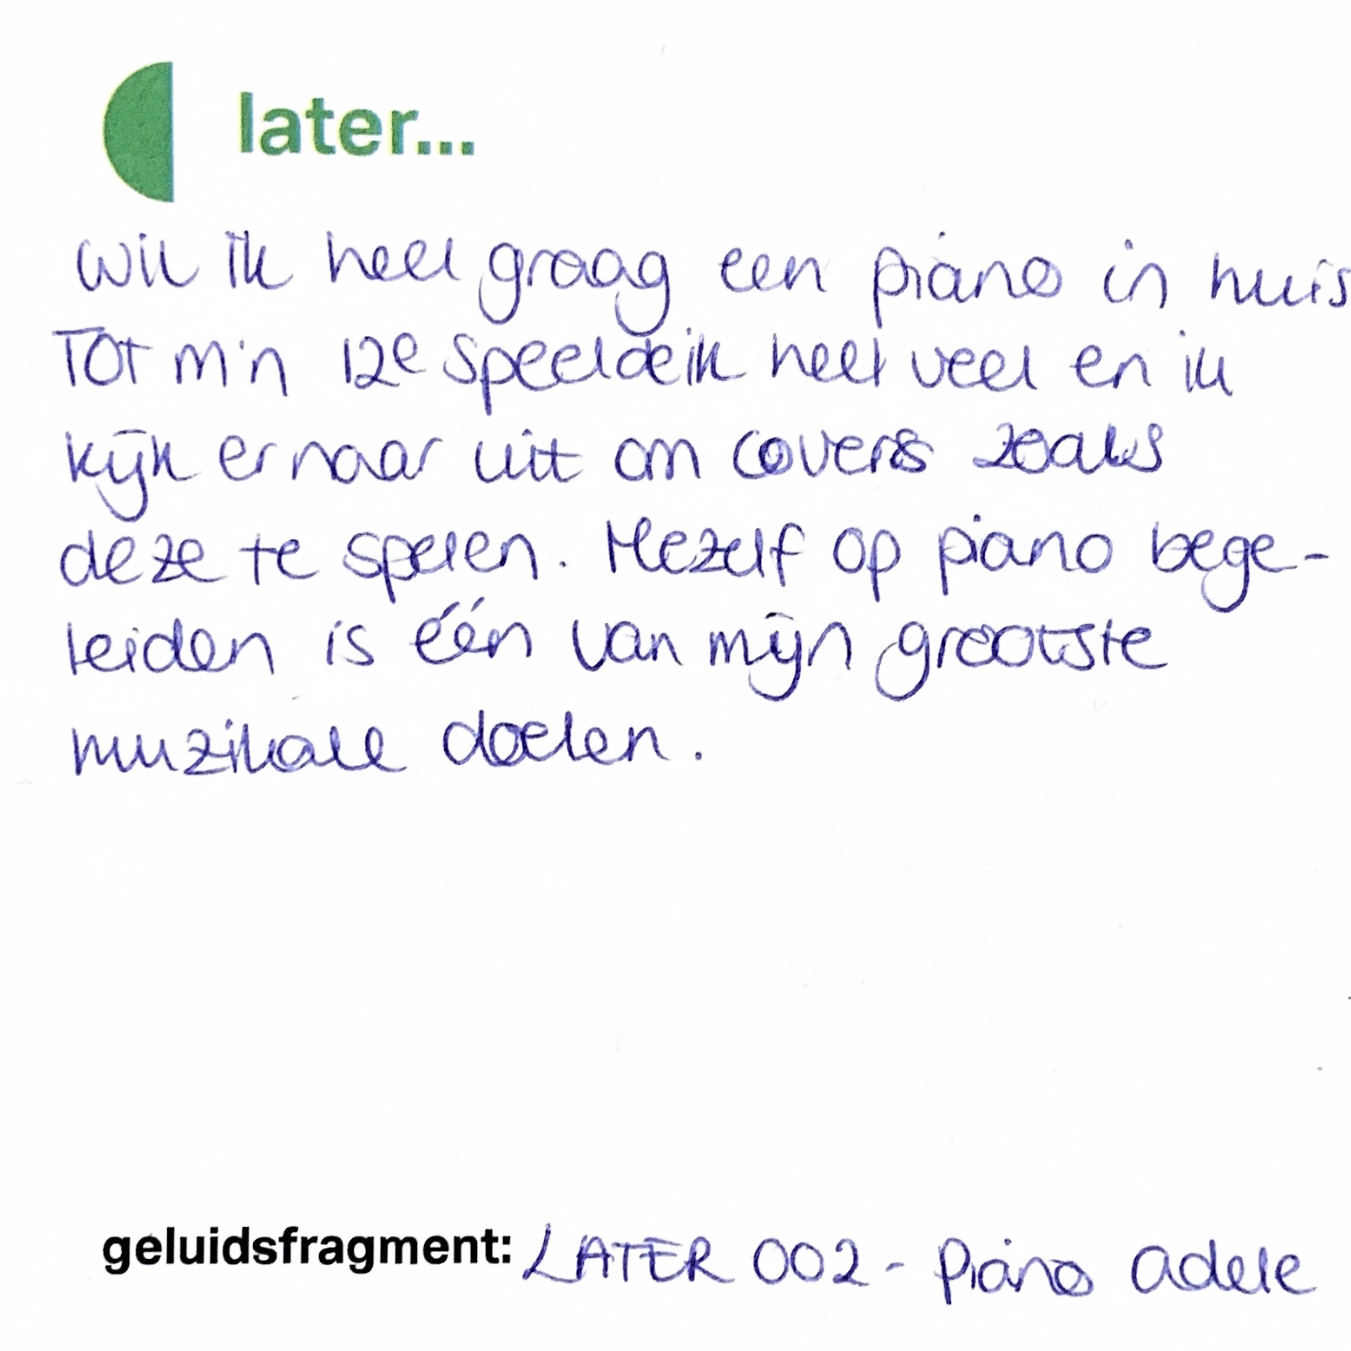 later...
Wil ik heel graag een piano in huis
Tot m'n 12e speelde ik heel veel en ik
kijk er naar uit om covers zoals
deze te spelen. Mezelf op piano bege-
leiden is één van mijn grootste
muzikale doelen.
geluidsfragment: LATER 002 - Piano adele